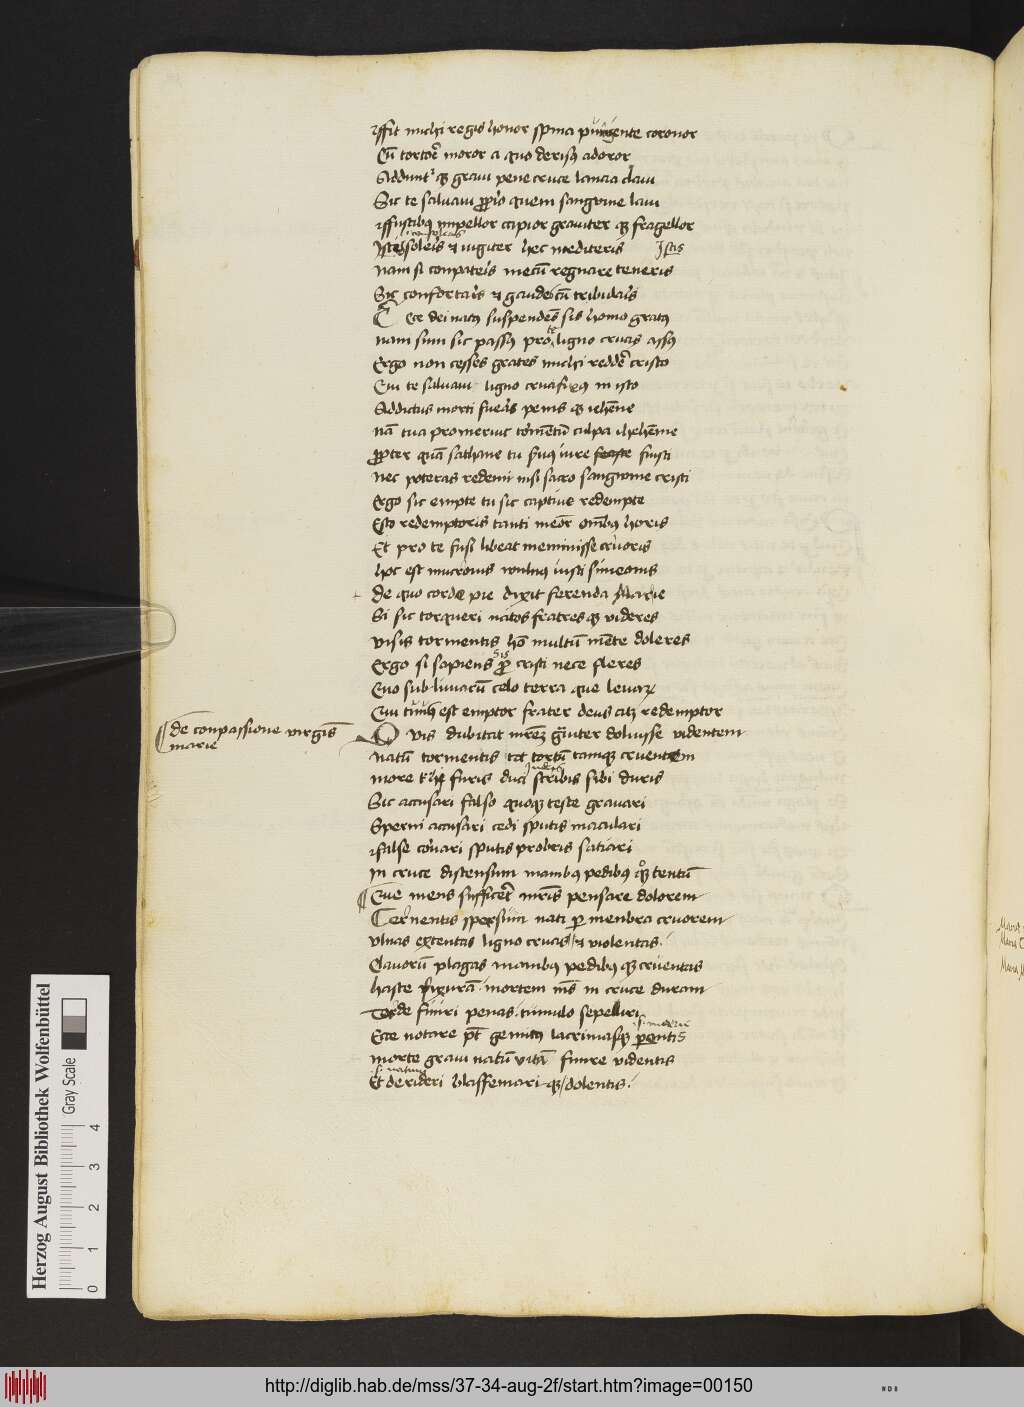 ffit michi regis honor spina pungente coronor
Cū tortor̄ moror a quo derisꝰ adoror
Addunt᷑ qꝫ graui pene cruce lancia claui
Sic te saluaui ꝓprio quem sangwine laui
ffustibꝰ impellor capior grauiter qꝫ fragellor
soleris et iugiter hec mediteris
Nam si compateris mecū regnare teneris
Sic confortaris et gaude cū tribularis
Ecce dei natꝰ suspendes̄ sis homo gratꝰ
Nam sum sic passꝰ pro te ligno crucis assꝰ
Ergo non cesses grates michi redde cristo
Qui te saluaui ligno crucifixꝰ in isto
Addictus morti fueris penis qꝫ iehēne
Nā tua promeruit tormētū culpa iehēnne
ꝓpter quā sathane tu iure fuisti
Nec poteras redemi nisi sacro sangwine cristi
Ergo sic empte tu sic captiue redempte
Esto redemptoris tanti meōr omībꝰ horis
Et pro te fusi libeat meminisse cruoris
Hoc est mucronis wulnꝰ iusti simeonis
De quo corde pie dixit ferenda Marie
Si sic torqueri natos fratres qꝫ videres
Visis tormentis hō multū mēte doleres
Ergo si sapiens sis ꝓ cristi nece fleres
Quo sublimacū celo terra que leuaꝝ
Qui est emptor frater deus redemptor
de conpassione virginis̄
marie
Quis dubitat mrēꝫ gͣuiter doluisse videntem
Natū tormentis tot tortū tamqꝫ cruentem
More furis duci scribis sibi duris
Sic accusari falso quoqꝫ teste grauari
Sperni accusari cedi sputis maculari
ffalse sputis probris satiari
In cruce distensum manibꝰ pedibꝰ tentū
Que mens sufficeret mrīs pensare dolorem
Cernentis spersum nati ꝑ menbra cruorem
Vlnas extentas ligno crucis et violentas
Clauorū plagas manibꝰ pedibꝰ qꝫ cruentas
Haste mortem in cruce duram
finiri penas tumulo sepeliri
Ecce notare pt̄ gemitꝰ lacrimasqꝫ ꝑentis
Morte graui natū vitā finire videntis
Et derideri blasfemari qꝫ dolentis
Herzog August Bibliothek Wolfenbüttel
Gray Scale
0 1 2 3 4
http://diglib.hab.de/mss/37-34-aug-2f/start.htm?image=00150